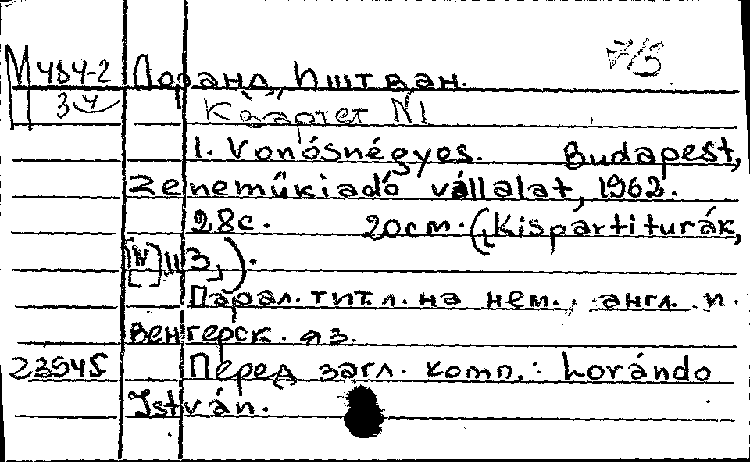 М 484-2 Лоранд, Иштван. 7/3
34 Квартет N1
1. Vonósnégyes. Budapest,
Zeneműkiadó vállalat, 1962.
28с. 20см. (Kispartiturák,
[N] 113,).
Парал. титл. на нем., англ. и
венгерск. яз.
23545 Перед загл. комп.: Lorándo
István.